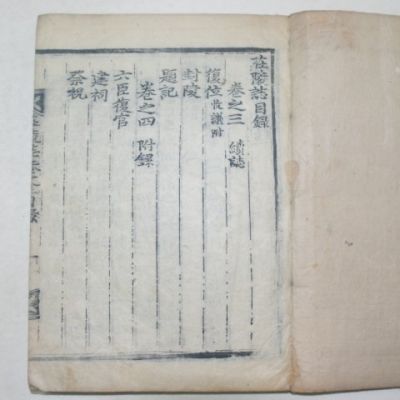 莊陵誌目錄
卷之三 續誌
復位 收議附
封陵
題記
卷之四 附錄
六臣復官
建祠
祭祝